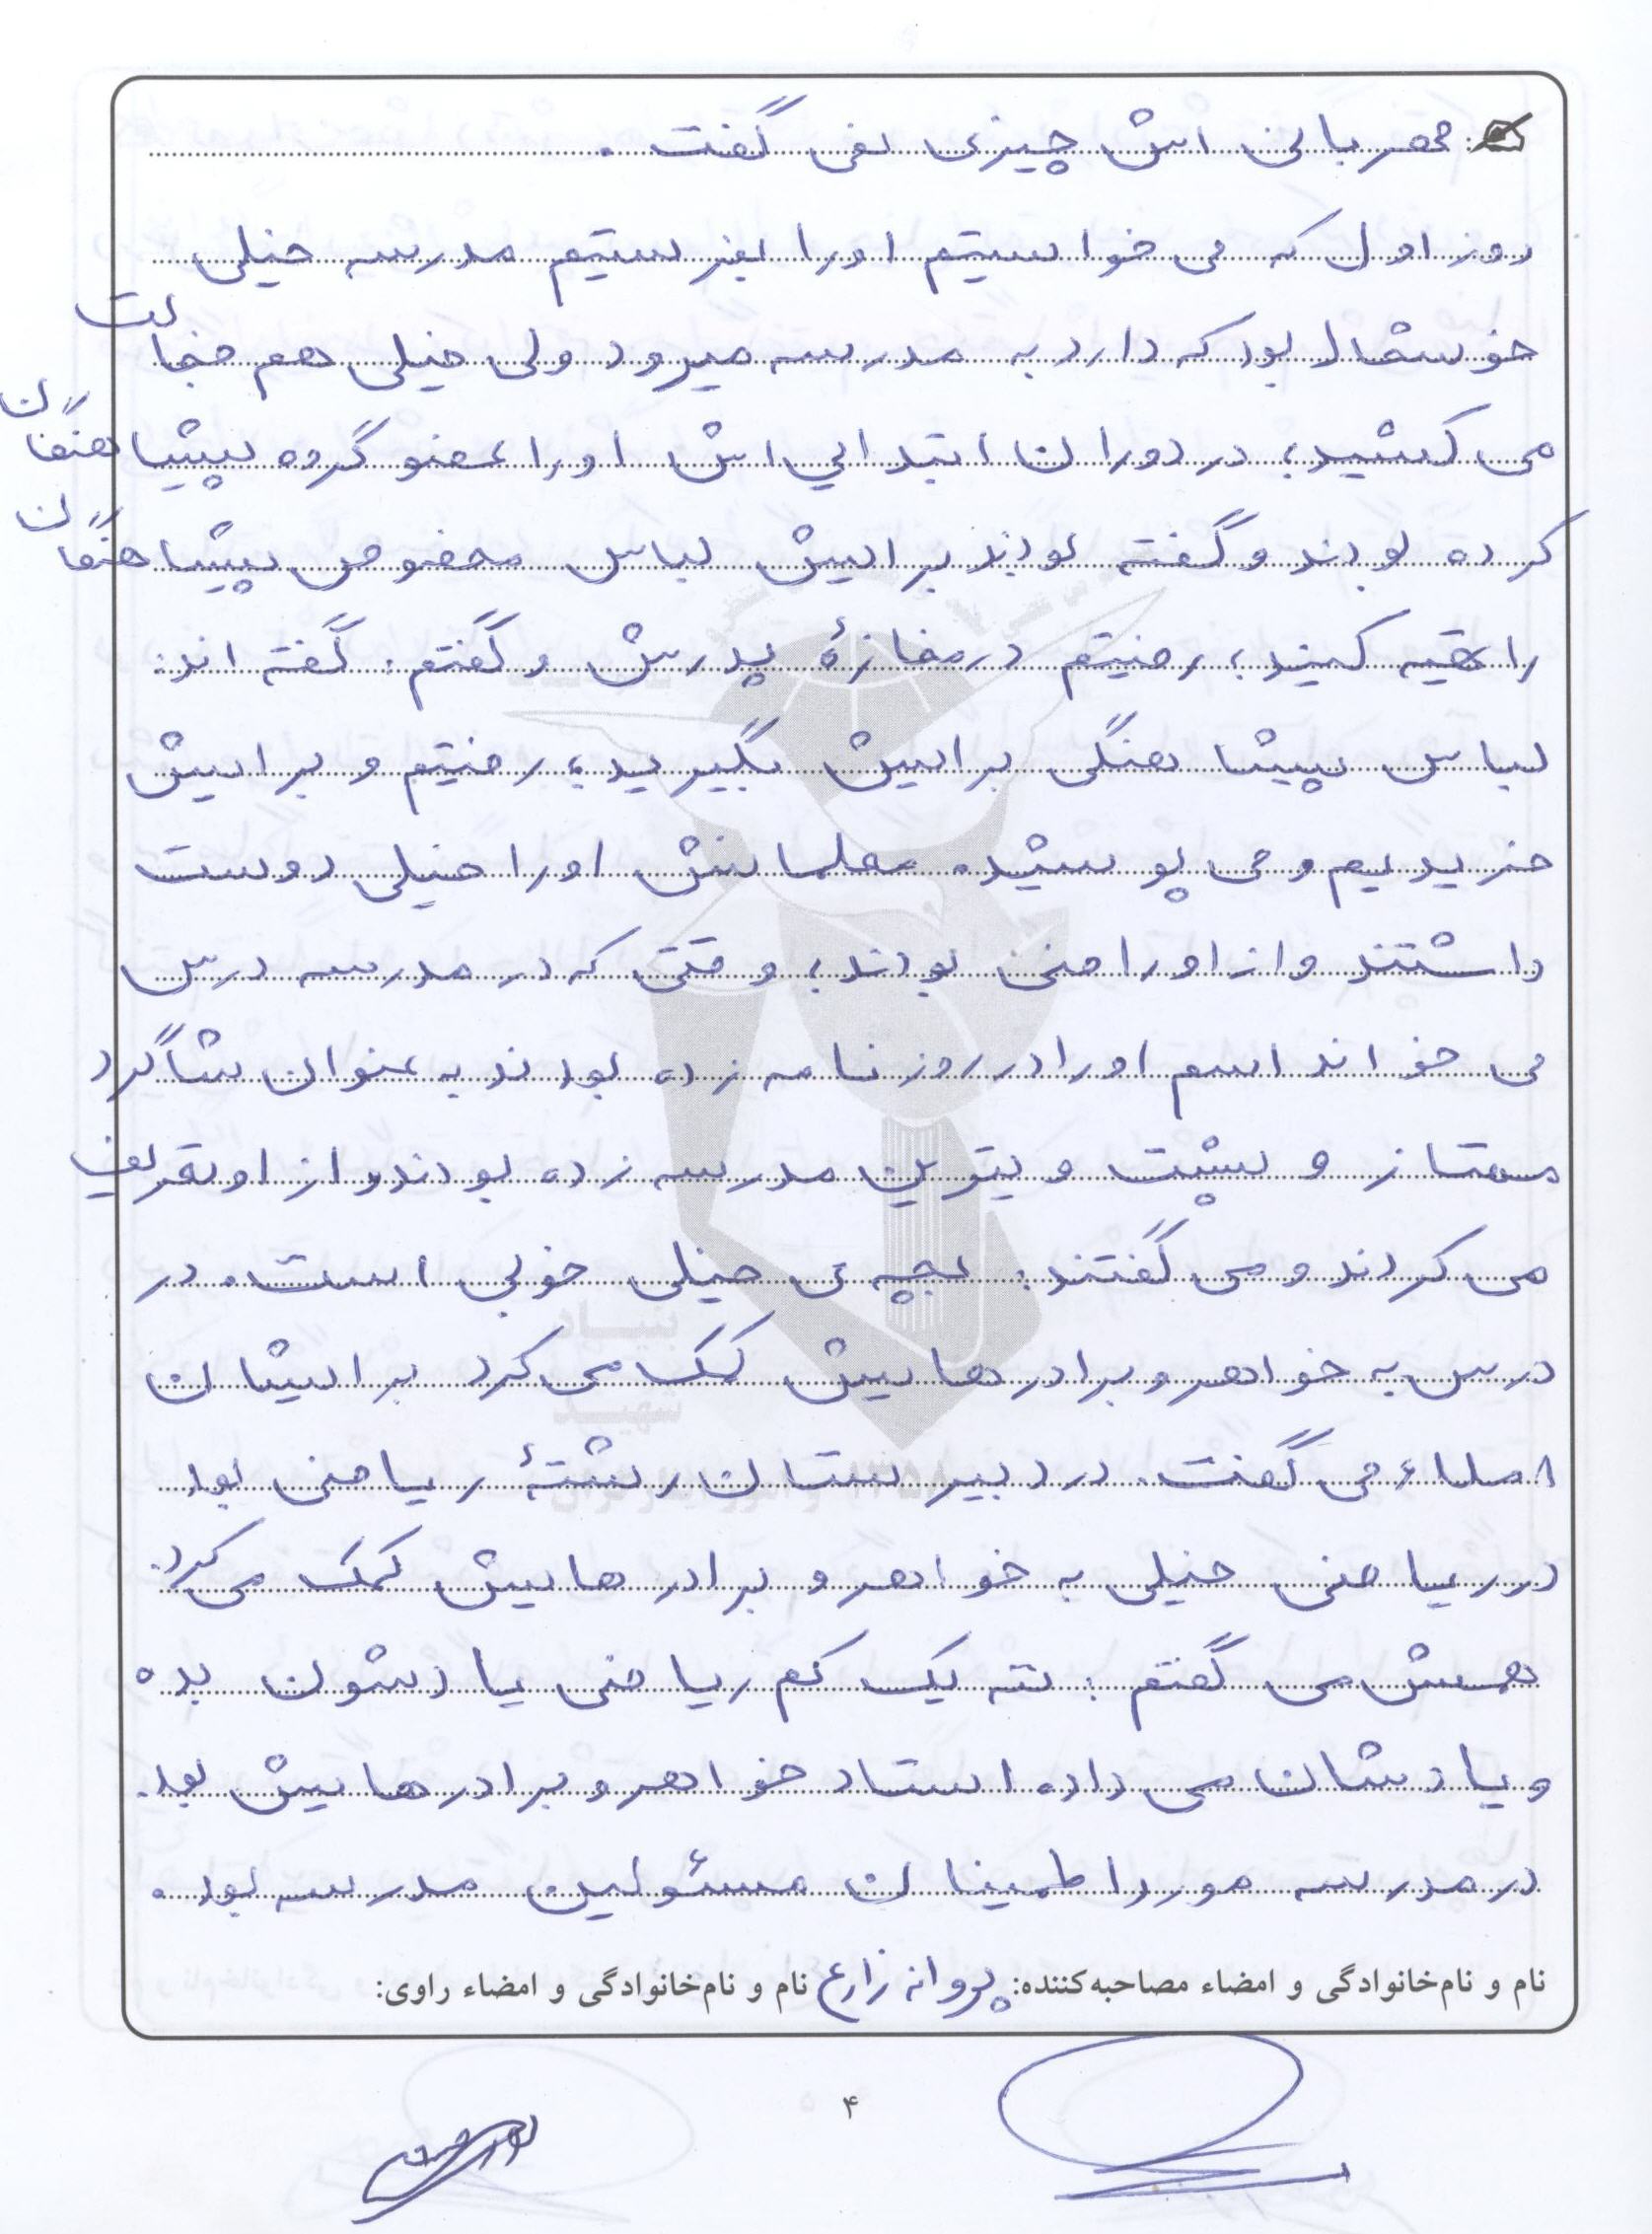 مهربانی اش چیزی نمی گفت .
روز اول که می خواستیم اورا بفرستیم مدرسه خیلی
خوشحال بود که دارد به مدرسه میرود ولی خیلی هم خجالت
می کشید؛ در دوران ابتدایی اش اورا عضو گروه پیشاهنگان
کرده بودند و گفته بودند برایش لباس مخصوص پیشاهنگان
را تهیه کنید؛ رفتیم در مغازۀ پدرش و گفتم: گفته اند:
لباس پیشاهنگی برایش بگیرید؛ رفتیم و برایش
خریدیم و می پوشید. معلمانش اورا خیلی دوست
داشتند و از او راضی بودند؛ وقتی که در مدرسه درس
می خواند اسم اورا در روزنامه زده بودند به عنوان شاگرد
ممتاز و پشت ویترین مدرسه زده بودند و از او تعریف
می کردند و می گفتند: بچه ی خیلی خوبی است. در
درس به خواهر و برادرهایش کمک می کرد برایشان
املاء می گفت. در دبیرستان رشتۀ ریاضی بود.
در ریاضی خیلی به خواهر و برادرهایش کمک می کرد.
همش می گفتم: ننه یک کم ریاضی یادشون بده
و یادشان می داد. استاد خواهر و برادرهایش بود.
در مدرسه مورد اطمینان مسئولین مدرسه بود.
نام و نام‌خانوادگی و امضاء مصاحبه‌کننده: پروانه زارع نام و نام‌خانوادگی و امضاء راوی:
۴